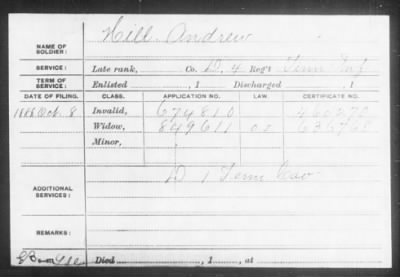 Hill Andrew
NAME OF SOLDIER:
SERVICE: Late rank, Co. D, 4 Reg't Tenn Inf
TERM OF SERVICE: Enlisted , 1 Discharged , 1
DATE OF FILING. CLASS. APPLICATION NO. LAW. CERTIFICATE NO.
1888 Oct. 8 Invalid, 674810
Widow, 849611
Minor,
ADDITIONAL SERVICES: D 1 Tenn Cav
REMARKS:
Died , 1 , at